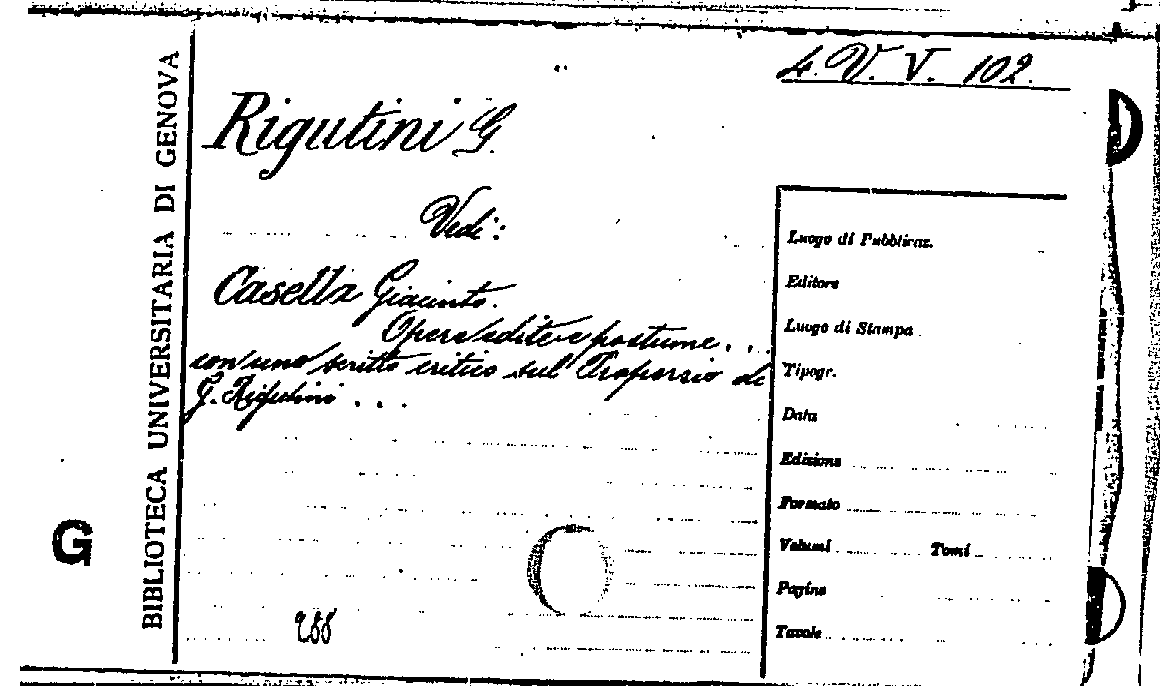 4. V. V. 102.
Rigutini G.
Vedi:
Casella Giacinto.
Opere edite e postume . . .
con uno scritto critico sul Properzio di
G. Rigutini . . .
288
BIBLIOTECA UNIVERSITARIA DI GENOVA
G
Luogo di Pubblicaz.
Editore
Luogo di Stampa
Tipogr.
Data
Edizione
Formato
Volumi Tomi
Pagine
Tavole